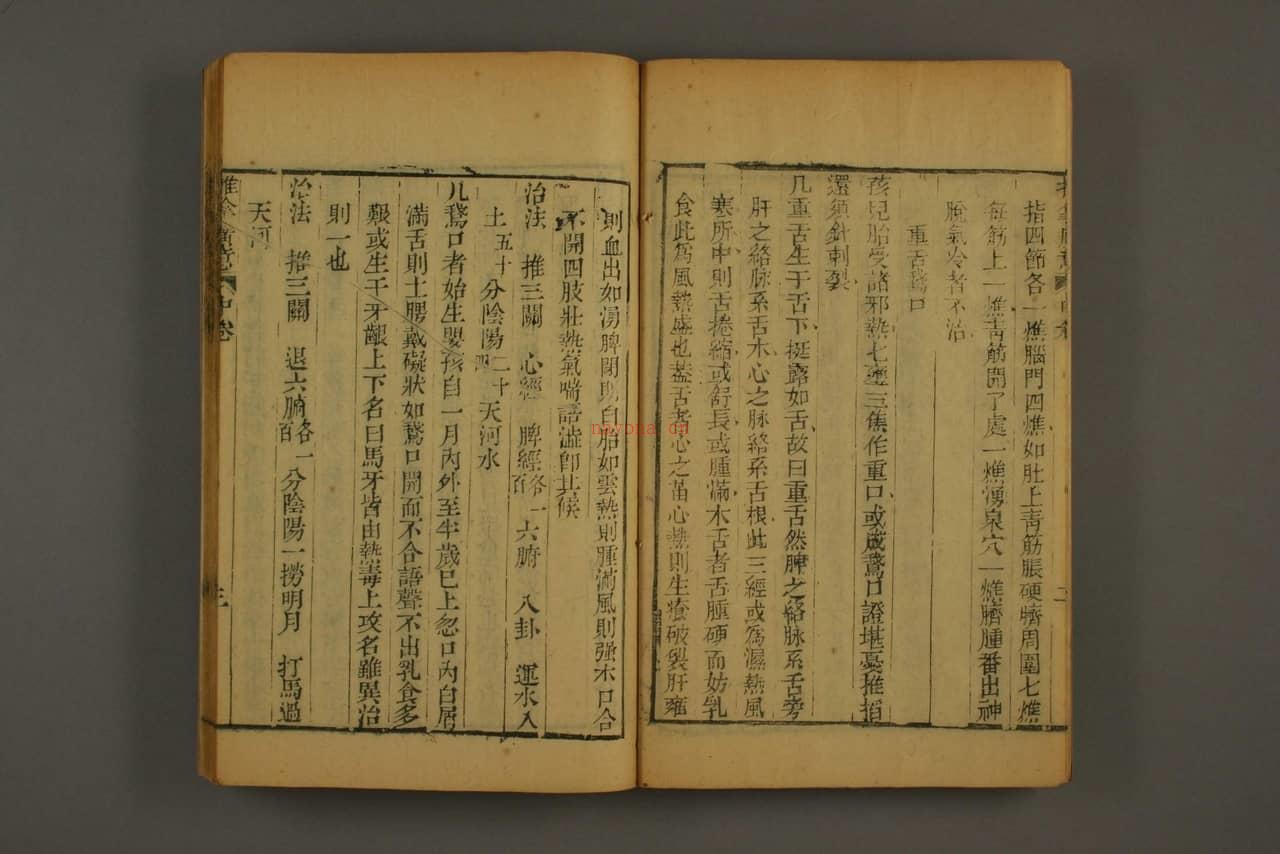 指四節各一燋腦門四燋如肚上青筋脹硬臍周圍七燋
每筋上一燋青筋開了處一燋湧泉穴一燋臍腫番出神
脫氣冷者不治
重舌鵞口
孩兒胎受諸邪熱七壅三焦作重口或成鵞口證堪憂推掐
還須針刺裂
凡重舌生于舌下挺露如舌故曰重舌然脾之絡脉系舌旁
肝之絡脉系舌木心之脉絡系舌根此三經或爲濕熱風
寒所中則舌捲縮或舒長或腫滿木舌者舌腫硬而妨乳
食此爲風熱盛也葢舌者心之苗心熱則生瘡破裂肝雍
則血出如湧脾閉則白胎如雲熱則腫滿風則强木口合
不開四肢壯熱氣喘語澁卽其候
治法 推三關 心經 脾經各一百 六腑 八卦 運水入
土五十 分陰陽二十四 天河水
凡鵞口者始生嬰孩自一月內外至半歲已上忽口內白屑
滿舌則上腭戴礙狀如鵞口開而不合語聲不出乳食多
艱或生于牙齦上下名曰馬牙皆由熱毒上攻名雖異治
則一也
治法 推三關 退六腑各一百 分陰陽一撈明月 打馬過
天河
中卷
三
nayona.cn